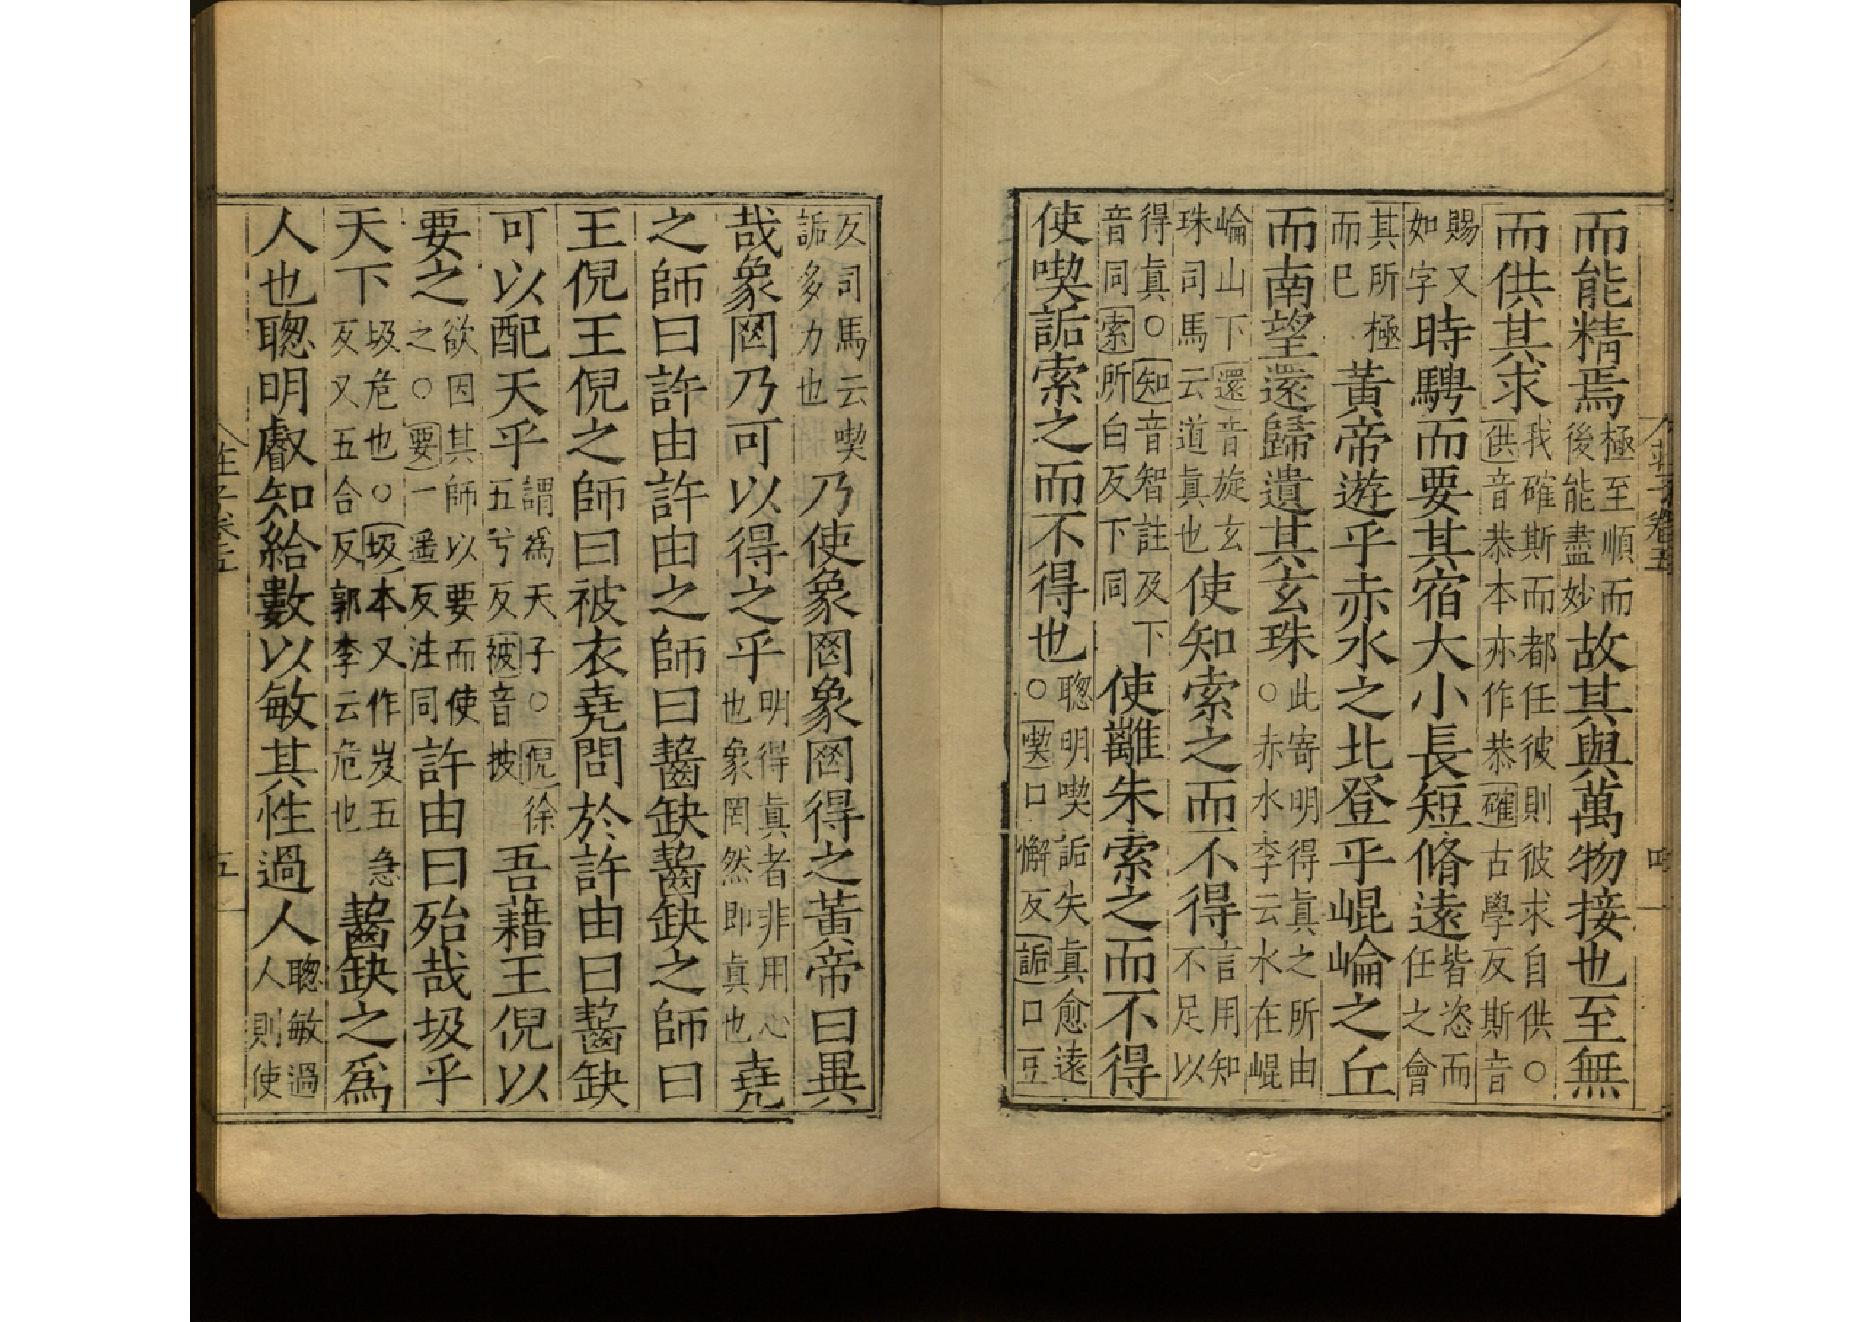 而能精焉極至順而後能盡妙故其與萬物接也至無
而供其求我確斯而都任彼則彼求自供○供音恭本亦作恭確古學反斯音
賜又如字時騁而要其宿大小長短脩遠皆恣而任之會
其所極而巳黃帝遊乎赤水之北登乎崐崘之丘
而南望還歸遺其玄珠此寄明得眞之所由○赤水李云水在崐
崘山下還音旋玄珠司馬云道眞也使知索之而不得言用知不足以
得眞○知音智註及下音同索所白反下同使離朱索之而不得
使喫詬索之而不得也聰明喫詬失眞愈遠○喫口懈反詬口豆
反司馬云喫詬多力也乃使象罔象罔得之黃帝曰異
哉象罔乃可以得之乎明得眞者非用心也象罔然即眞也堯
之師曰許由許由之師曰齧缺齧缺之師曰
王倪王倪之師曰被衣堯問於許由曰齧缺
可以配天乎謂爲天子○倪徐五兮反被音披吾藉王倪以
要之欲因其師以要而使之○要一遥反注同許由曰殆哉圾乎
天下圾危也○圾本又作岌五急反又五合反郭李云危也齧缺之爲
人也聰明叡知給數以敏其性過人聰敏過人則使
莊子卷五
五